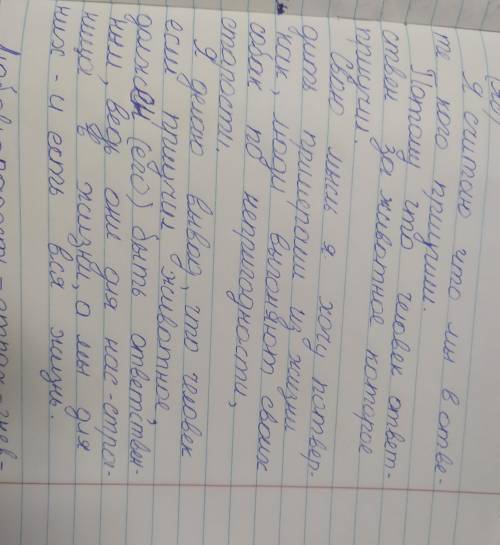 (3.)
Я считаю что мы в отве-
те кого приучим.
Потому что человек ответ-
ствен за животное которое
приучил.
Свою мысль я хочу потвер-
дить примерами из жизни
как, люди выгоняют своих
собак по непригодности,
старости.
Я делаю вывод, что человек
если приучил животное,
должен (его) быть ответствен-
ным, ведь они для нас - стра-
ница в жизни, а мы для
них - и есть вся жизнь.